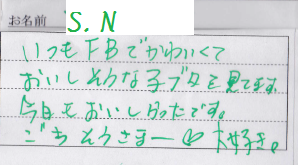 お名前 S.N
いつもFBでかわいくて
おいしそうな子ブタを見てます。
今日もおいしかったです。
ごちそうさまー♡大好き。